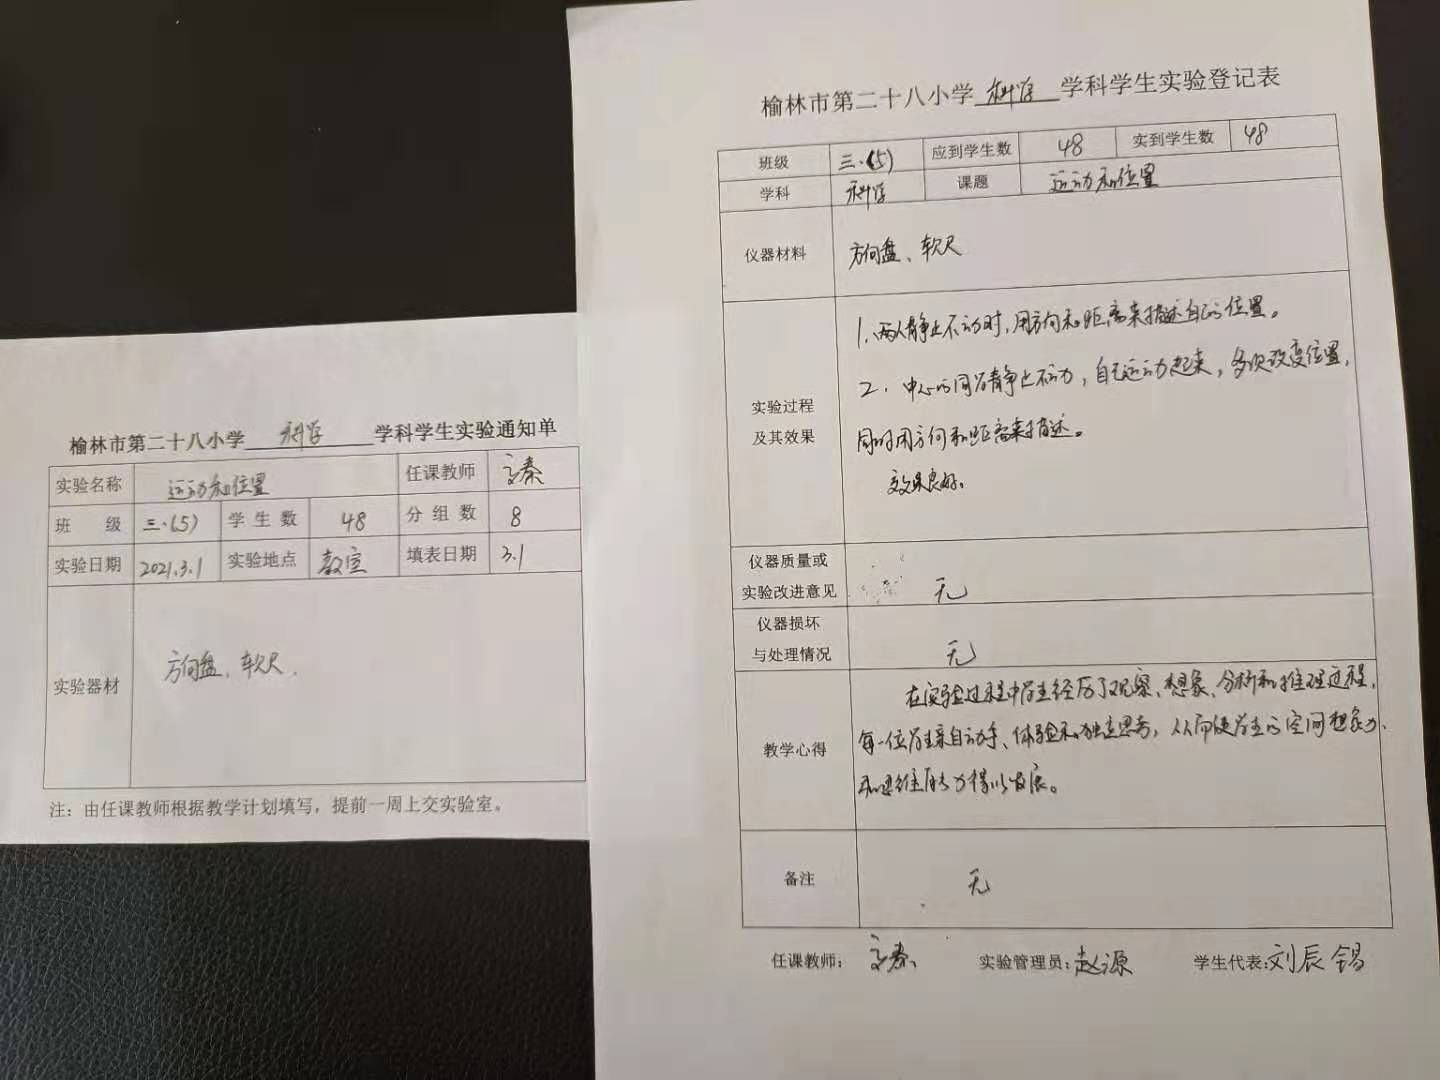 榆林市第二十八小学 科学 学科学生实验通知单
实验名称 运动和位置 任课教师 秦
班 级 三.(5) 学生数 48 分组数 8
实验日期 2021.3.1 实验地点 教室 填表日期 3.1
实验器材 方向盘、软尺.
注：由任课教师根据教学计划填写，提前一周上交实验室。
榆林市第二十八小学 科学 学科学生实验登记表
班级 三.(5) 应到学生数 48 实到学生数 48
学科 科学 课题 运动和位置
仪器材料 方向盘、软尺
实验过程
及其效果
1、两人静止不动时,用方向和距离来描述自己的位置。
2. 中心的同学静止不动,自己运动起来,多次改变位置,
同时用方向和距离来描述。
效果良好。
仪器质量或
实验改进意见 无
仪器损坏
与处理情况 无
教学心得
在实验过程中学生经历了观察、想象、分析和推理过程,
每一位学生亲自动手、体验和独立思考,从而使学生的空间想象力、
和思维能力得以发展。
备注 无
任课教师： 秦 实验管理员：赵源 学生代表:刘辰锡